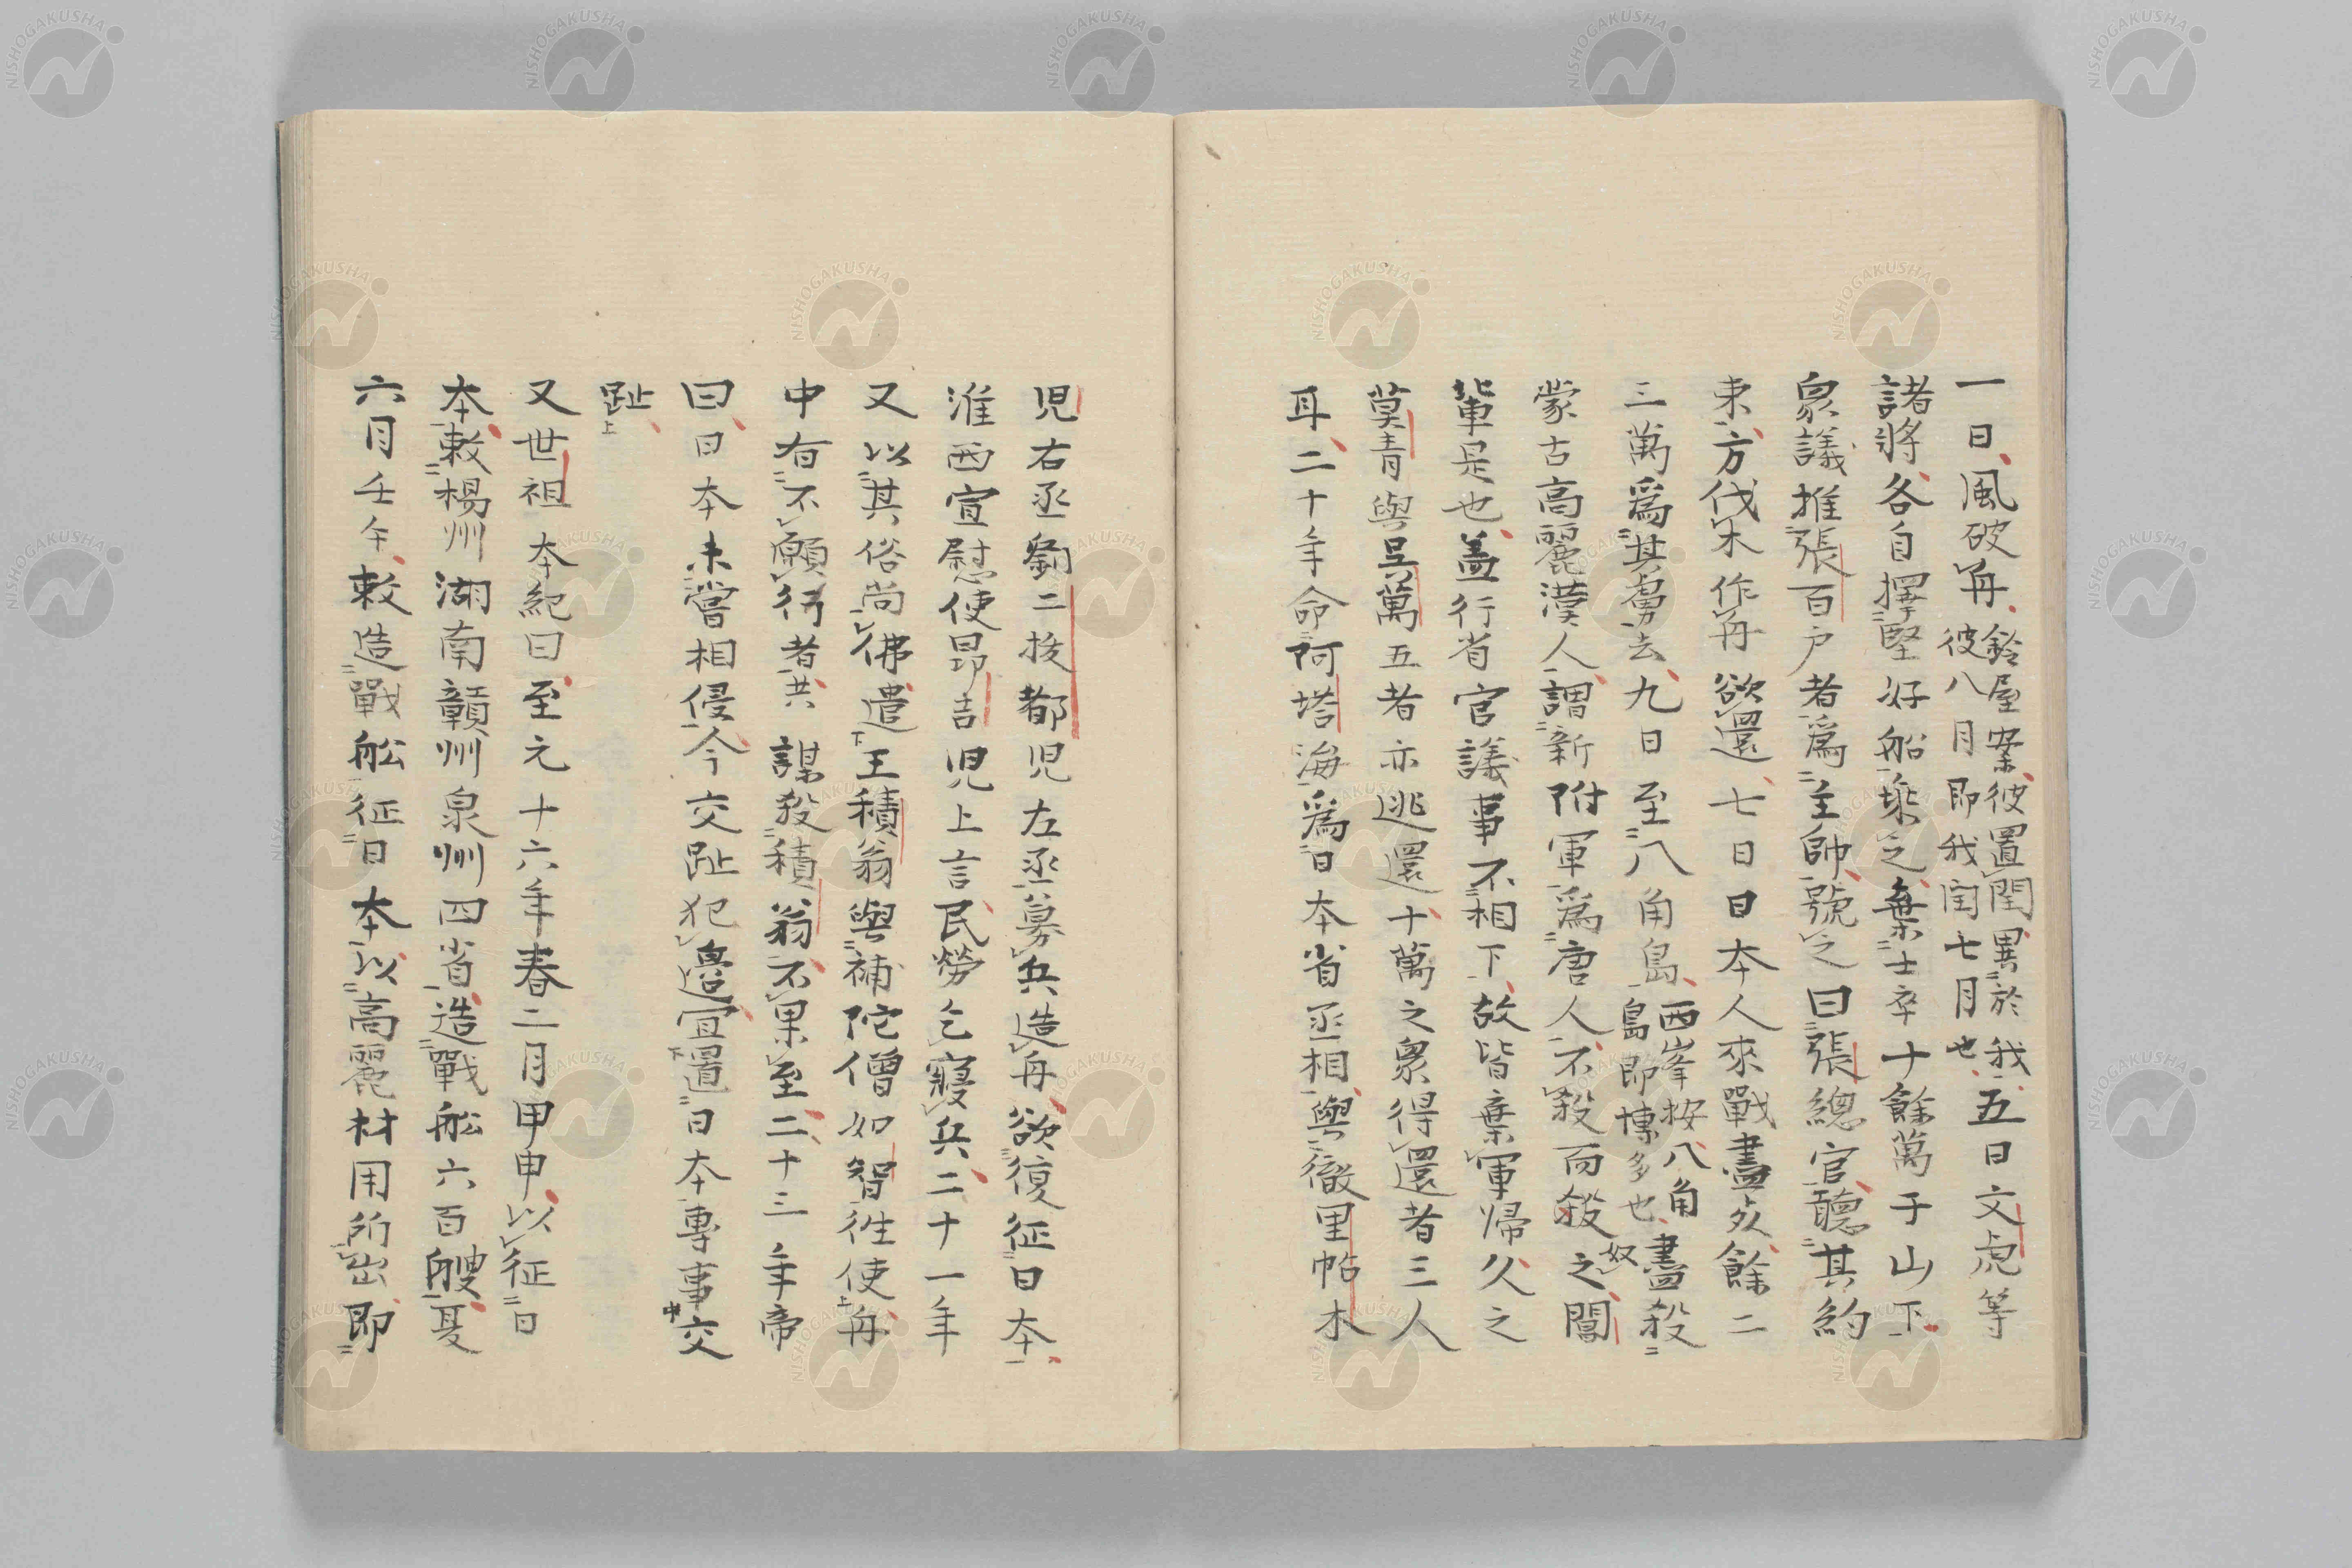 一日風破舟 鈴屋案彼置閏異於我 彼八月即我閏七月也 五日文虎等
諸將各自擇堅好船乗之棄士卒十餘萬于山下
衆議推張百戶者爲主帥號之曰張總官聽其約
束方伐木作舟欲還七日日本人來戰盡死餘二
三萬爲其虜去九日至八角島 西峯按八角 島即博多也 盡殺
蒙古高麗漢人謂新附軍爲唐人不殺而奴之閶
輩是也盖行省官議事不相下故皆棄軍歸久之
莫青與吴萬五者亦逃還十萬之衆得還者三人
耳二十年命阿塔海爲日本省丞相與徹里帖木
児右丞劉二抜都児左丞募兵造舟欲復征日本
淮西宣慰使昻吉児上言民勞乞寢兵二十一年
又以其俗尚佛遣王積翁與補陀僧如智徃使舟
中有不願行者共謀殺積翁不果至二十三年帝
曰日本未嘗相侵今交趾犯邉宜置日本專事交
趾
又世祖本紀曰至元十六年春二月甲申以征日
本敕楊州湖南贛州泉州四省造戰舩六百艘夏
六月壬午敕造戰舩征日本以高麗材用所出即
NISHOGAKUSHA